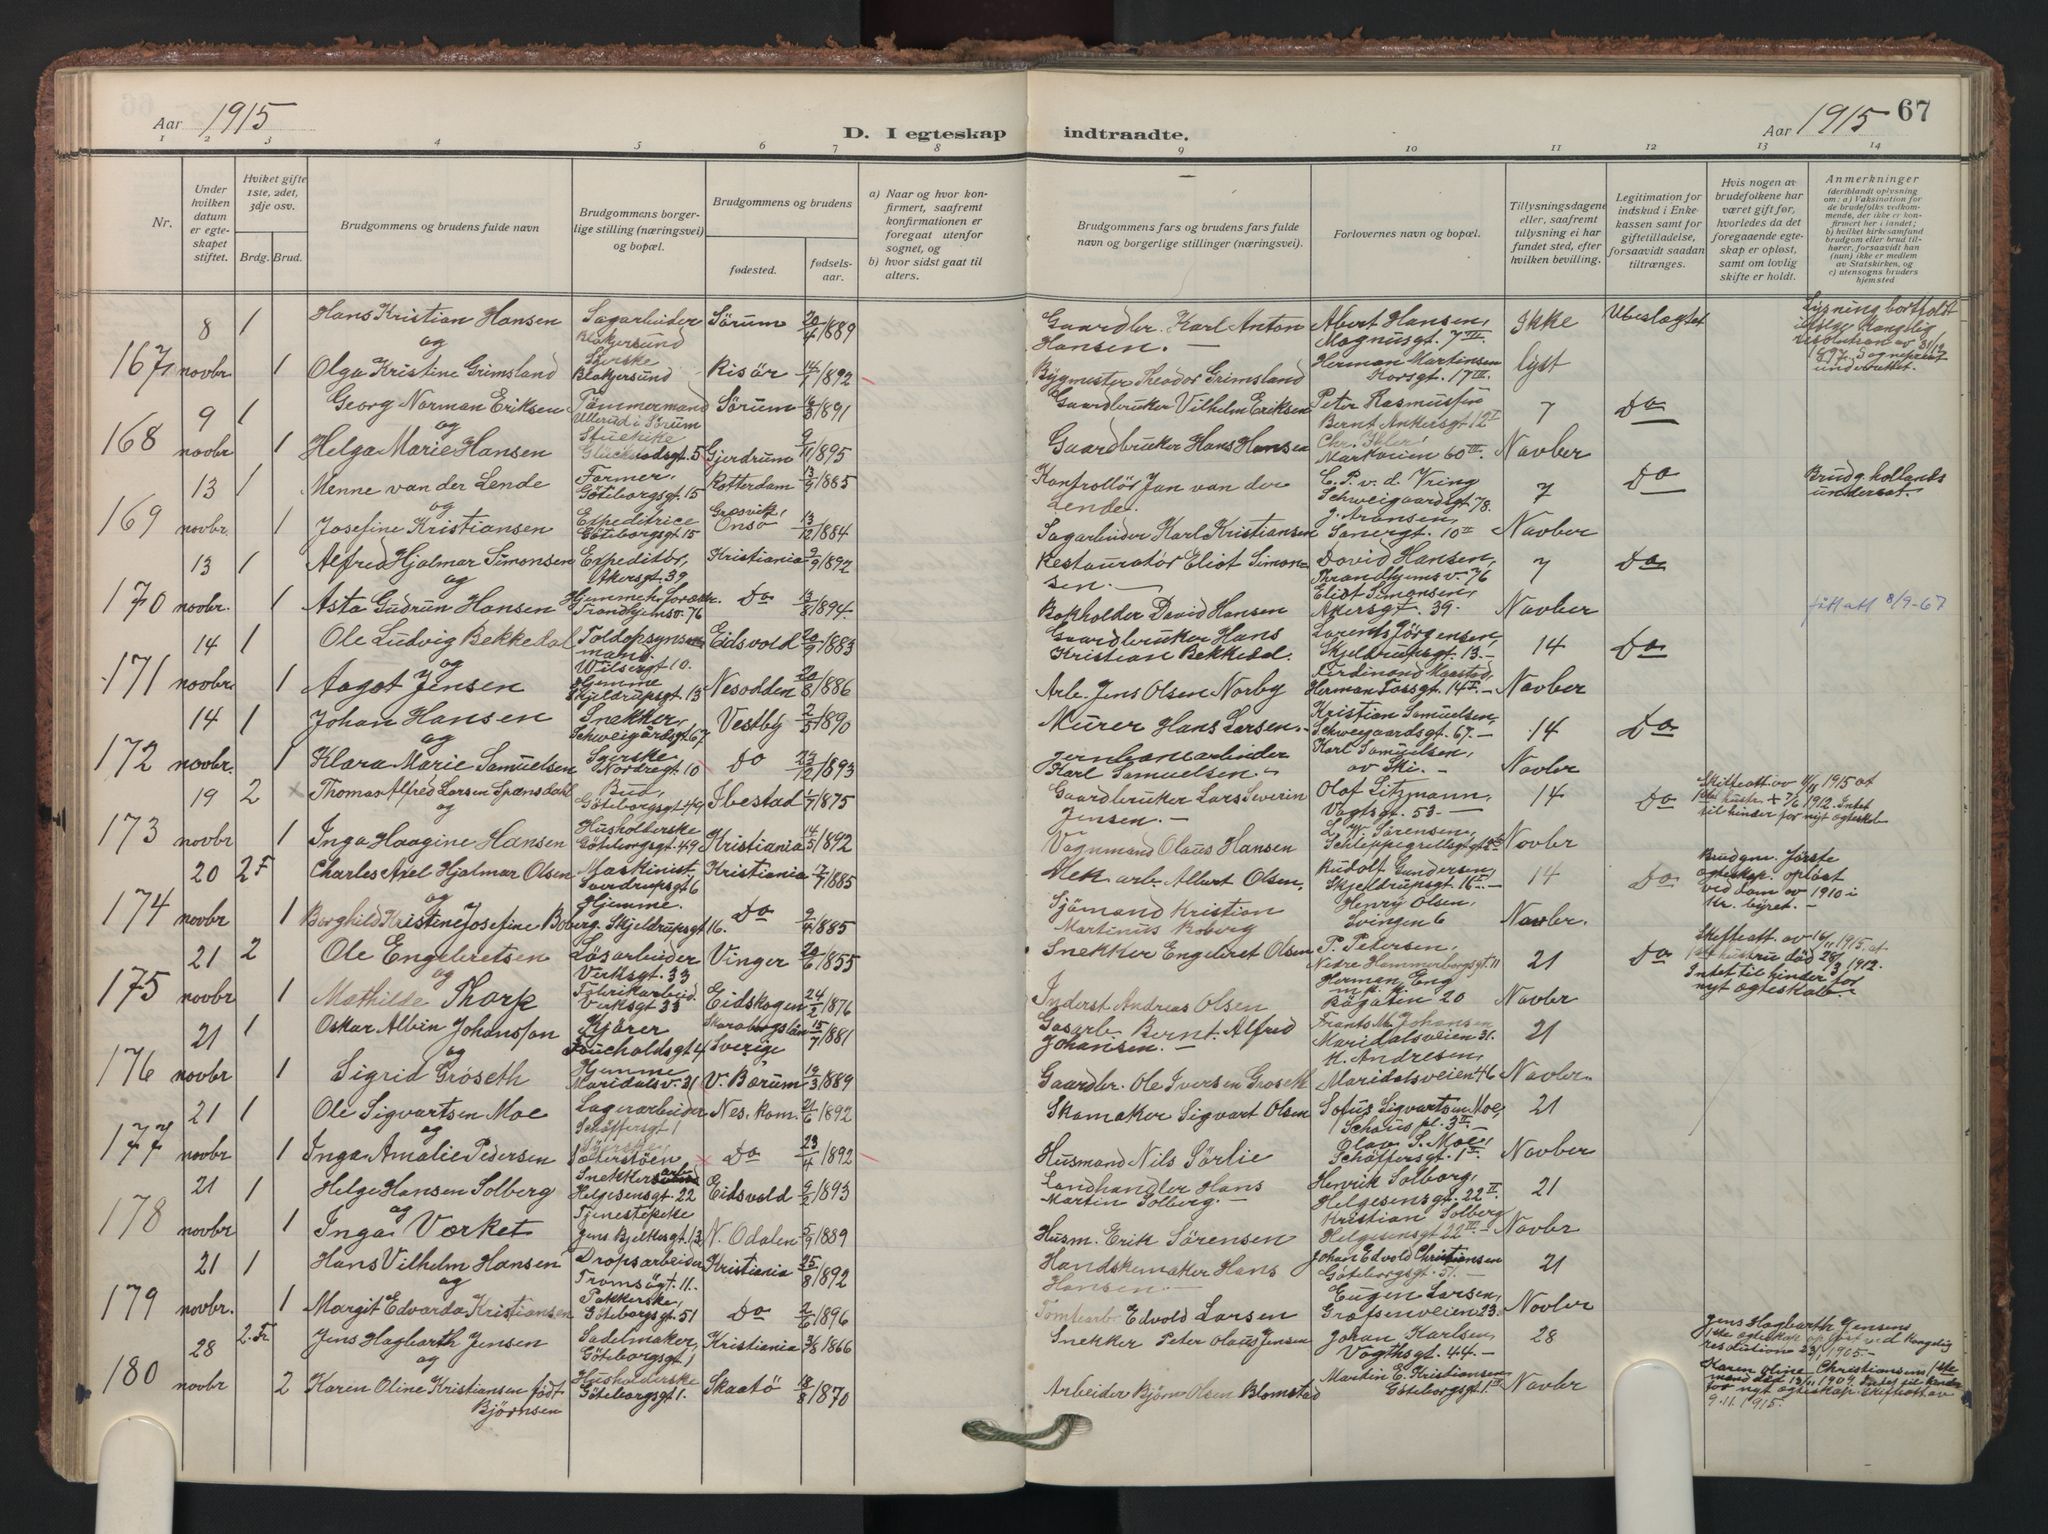 Aar 1915
D. I egteskap indtraadte.
Aar 1915
67
1 2 3 4 5 6 7 8 9 10 11 12 13 14
Nr.
Under hvilken datum er egteskapet stiftet.
Hviket gifte 1ste, 2det, 3dje osv.
Brdg. Brud.
Brudgommens og brudens fulde navn
Brudgommens borgerlige stilling (næringsvei) og bopæl.
Brudgommens og brudens
fødested. fødselsaar.
a) Naar og hvor konfirmert, saafremt konfirmationen er foregaat utenfor sognet, og
b) hvor sidst gaat til alters.
Brudgommens fars og brudens fars fulde navn og borgerlige stillinger (næringsvei).
Forlovernes navn og bopæl.
Tillysningsdagene eller, saafremt tillysning ei har fundet sted, efter hvilken bevilling.
Legitimation for indskud i Enkekassen samt for giftetilladelse, forsaavidt saadan tiltrænges.
Hvis nogen av brudefolkene har været gift før, hvorledes da det foregaaende egteskap er opløst, samt om lovlig skifte er holdt.
Anmerkninger
(deriblandt oplysning om: a) Vaksination for de brudefolks vedkommende, der ikke er konfirmert her i landet; b) hvilket kirkesamfund brudgom eller brud tilhører, forsaavidt han (hun) ikke er medlem av Statskirken, og c) utensogns bruders hjemsted
167 8 novbr 1 Hans Kristian Hansen Sagarbeider Blakersund Sörum 20/4 1889 Gaardbr. Karl Anton Hansen. Albert Hansen, Magnusgt. 7 III Ikke Ubeslegtet
og
1 Olga Kristine Grimsland Syerske Blakjersund Risör 14/1 1892 Bygmester Theodor Grimsland Herman Martinsen Korsgt. 17 III lyst
Lysning bortfaldt ifölge Kongelig resolution av
168 9 novbr 1 Georg Norman Eriksen Tömmermand Ullerud i Sörum Sörum 1891 Gaardbruker Vilhelm Eriksen Peter Rasmussen Bernt Ankersgt 12 I 7 Do
og
1 Helga Marie Hansen Stuepike Gjerdrum 9/11 1895 Gaardbruker Hans Hansen Markveien 60 III. Novber
169 13 novbr 1 Menne van der Lende Former, Göteborgsgt 15 Rotterdam 13/9 1885 Kontrollör Jan van der Lende. C. P. v. d. Vring Schweigaardsgt 78. 7 Do Brudg. hollandsk undersaat.
og
1 Josefine Kristiansen Expeditrice Göteborgsgt 15 Onsö 13/12 1884 Sagarbeider Karl Kristiansen J. Aronsen, Sanergt. 10 II Novber
170 13 novbr. 1 Alfred Hjalmar Simonsen Expeditör, Akersgt. 39 Kristiania 2/9 1892 Restauratör Eliot Simonsen. David Hansen, Throndhjemsv. 76 7 Do
og
1 Asta Gudrun Hansen Trondhjemsv. 76 Do 13/8 1894. Bokholder David Hansen Eliot Simonsen, Akersgt. 39. Novber 8/9-67
171 14 novbr. 1 Ole Ludvig Bekkedal Toldopsynsmand. Wilsesgt 10. Eidsvold 20/9 1883 Gaardbruker Hans Kristian Bekkedal. Lorents Jörgensen, Skjeldrupsgt. 13. 14 Do
og
1 Aagot Jensen Hjemme Skjeldrupsgt. 13 Nesodden 20/8 1886 Arb. Jens Olsen Norby Herman Fossgt. 14 I Novber
172 14 novbr. 1 Johan Hansen Snekker, Schweigårdsgt. 67 Vestby 2/5 1890 Murer Hans Larsen. Kristian Samuelsen, Schweigaardsgt. 67. 14 Do
og
1 Klara Marie Samuelsen Syerske Nordregt. 10 Do 1893 Jernbanearbeider Karl Samuelsen. Karl Samuelsen, av Ski. Novbr
173 19 novbr 2 Thomas Alfred Larsen Spænsdahl Bud, Göteborgsgt 49 Ibestad 1/7 1875 Gaardbruker Lars Severin Jensen. Olaf Litzmann, Vogtsgt. 53 14 Do
og
1 Inga Haagine Hansen Husholderske Göteborgsgt. 49 Kristiania 14/5 1892 Vognmand Olaus Hansen L. W. Sörensen, Novber
Skifteatt av 11/11 1915 at 1ste hustr. + 7/6 1912. Intet til hinder for nyt egteskab
174 20 novbr 2 F Charles Axel Hjalmar Olsen Maskinist, Sverdrupsgt 6 Kristiania 12/7 1885 Mek arb. Albert Olsen. Rudolf Gundersen, Skjeldrupsgt 16 14 Do
og
1 Borghild Kristine Josefine Boberg. Hjemme. Skjeldrupsgt 16. Do 9/4 1885 Sjömand Kristian Martinus Boberg Henry Olsen, Svingen 6 Novbr.
Brudgm. förste egteskap opløst ved dom av 1910 i Kr. byret.
175 21 novbr 2 Ole Engebretsen Lösarbeider Verksgt. 33 Vinger 20/6 1855 Snekker Engebret Olsen P. Petersen, Nedre Hammerborgsgt. 11 21 Do
og
1 Mathilde Thorp Fabrikarbeid. Verksgt 33 Eidskogen 1876 Inderst Andreas Olsen Herman Eng Bögaten 20 Novbr
Skifteatt. av 16/11 1915. at 1ste hustru död 28/3 1912. Intet til hinder for nyt egteskab.
176 21 novbr 1 Oskar Albin Johansson Kjörer Sverige 15/7 1881 Gasarb. Bernt Alfred Johansen. Frants M. Johansen Maridalsveien 31. 21
og
1 Sigrid Gröseth Hjemme Maridalsv. 31 V. Bærum 19/3 1889 Gaardbr. Ole Iversen Groseth K. Andresen, Maridalsveien 46 Novbr.
177 21 novbr 1 Ole Sigvartsen Moe Lagerarbeider Schäffersgt 1 Nes. Rom. 21/6 1892 Skomaker Sigvart Olsen Sofus Sigvartsen Moe, Schous pl. 3 II. 21
og
1 Inga Amalie Pedersen Syerske, Do 23/4 1892 Husmand Nils Sörlie Olav S. Moe, Schäffersgt. 1 Novber
178 21 novbr 1 Helge Hansen Solberg Helgesensgt. 22 Eidsvold 9/2 1893 Landhandler Hans Martin Solberg. Henrik Solberg, Helgesensgt. 22 II 21
og
1 Inga Værket Tjenestepike Jens Bjelkesgt. 13 N. Odalen 5/9 1889 Husm. Erik Sörensen Kristian Solberg Helgesensgt 22 III Novbr
179 21 novbr. 1 Hans Vilhelm Hansen Dropsarbeider Tromsögt 11. Kristiania 25/8 1892 Handskemaker Hans Hansen Johan Edvold Christiansen Göteborgsgt. 51. 21
og
1 Margit Edvarda Kristiansen Pakkerske, Göteborgsgt 51 Do 2/6 1896 Tomtearb. Edvold Larsen Eugen Larsen, Grefsenveien 23. Novber
180 28 novbr 2. Fr. Jens Hagbarth Jensen Sadelmaker, Göteborgsgt 1 Kristiania 3/8 1866 Snekker Peter Olaus Jensen Johan Karlsen, Vogthsgt. 44. 28
og
2 Karen Oline Kristiansen født Björnsen Husholderske Göteborgsgt 1. Skaatö 13/8 1870 Arbeider Björn Olsen Blomstad Martin E. Kristiansen Göteborgsgt. 1 Novbr
Jens Hagbarth Jensens 1ste egteskap opløst ved Kongelig resolution 1905.
Karen Oline Christiansens 1ste mand død 1904. Intet til hinder for nyt egteskap. Skifteatt av 9.11.1915.